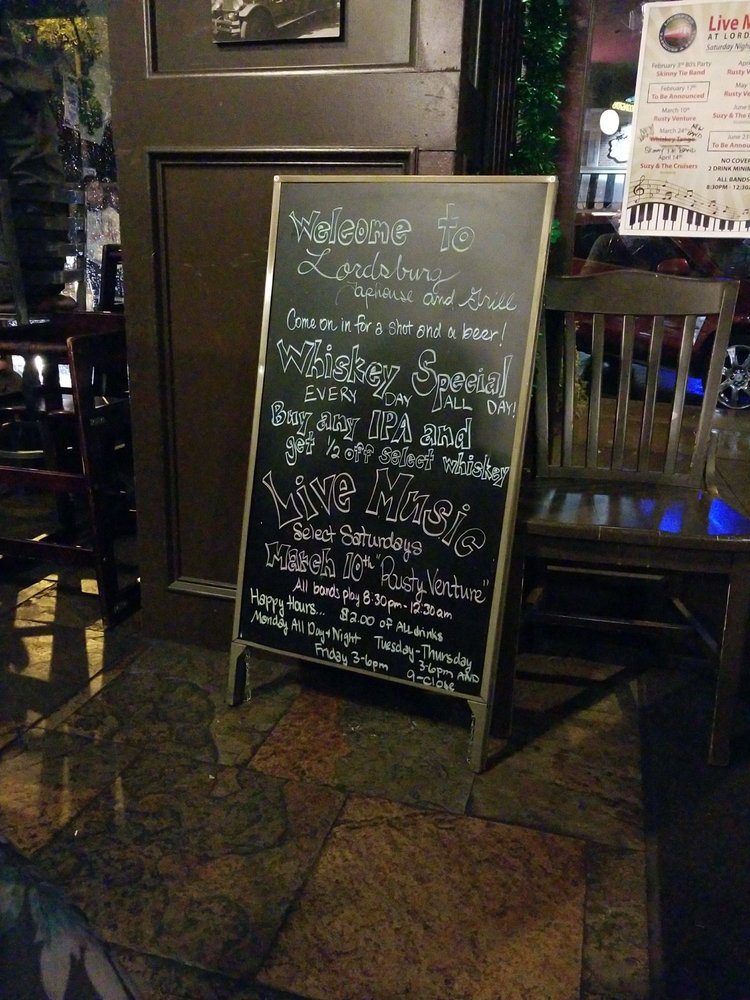 Welcome to
Lordsburg
Taphouse and Grill
Come on in for a shot and a beer!
Whiskey Special
EVERY DAY ALL DAY!
Buy any IPA and
get 1/2 off select whiskey
Live Music
Select Saturdays
March 10th "Rusty Venture"
All bands play 8:30pm-12:30am
Happy Hours... $2.00 of All drinks
Monday All Day+Night Tuesday-Thursday
Friday 3-6pm 3-6pm AND
9-Close
Live M
AT LORDS
Saturday Nigh
February 3rd 80's Party
Skinny Tie Band
February 17th
To Be Announced
March 10th
Rusty Venture
March 24th
Whiskey Tango
Skinny Tie Band
April 14th
Suzy & The Cruisers
Apri
Rusty V
May
Rusty Ve
June
Suzy & The
June 23
To Be Annou
NO COVE
2 DRINK MINIM
ALL BANDS
8:30PM - 12:30A